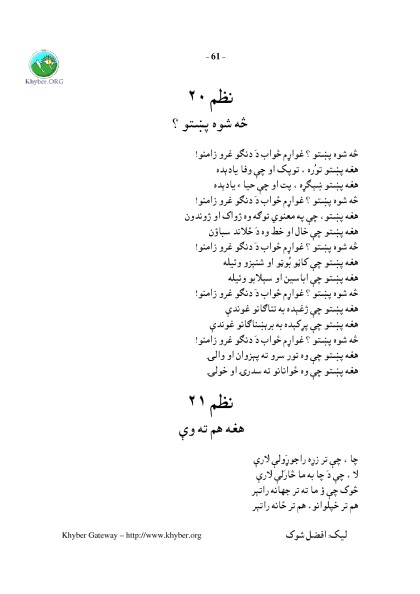 - 61 -
Khyber.ORG
نظم ۲۰
څه شوه پښتو ؟
څه شوه پښتو ؟ غواړم ځواب دَ دنګو غرو زامنو!
هغه پښتو تُوره ، توپک او چې وفا یادېده
هغه پښتو ننګ ، پت او چې حیا ء یادېده
څه شوه پښتو ؟ غواړم ځواب دَ دنګو غرو زامنو!
هغه پښتو ، چې په معنوي توګه وه ژواک او ژوندون
هغه پښتو چې خال او خط وه دَ ځلاند سباوُن
څه شوه پښتو ؟ غواړم ځواب دَ دنګو غرو زامنو!
هغه پښتو چې کاڼو بُوټو او شنېزو وئیله
هغه پښتو چې اباسین او سیلابو وئیله
څه شوه پښتو ؟ غواړم ځواب دَ دنګو غرو زامنو!
هغه پښتو چې ژغېده به تناګانو غوندې
هغه پښتو چې پړکېده به برېښناګانو غوندې
څه شوه پښتو ؟ غواړم ځواب دَ دنګو غرو زامنو!
هغه پښتو چې وه تور سرو ته پېزوان او والۍ
هغه پښتو چې وه ځوانانو ته سدرۍ او خولۍ
نظم ۲۱
هغه هم ته وې
چا ، چې تر زړه راجوړولې لارې
لا ، چې دَ چا به ما څارلې لارې
څوک چې وُ ما ته تر جهانه راتېر
هم تر خپلوانو ، هم تر ځانه راتېر
Khyber Gateway – http://www.khyber.org
لیک: افضل شوک